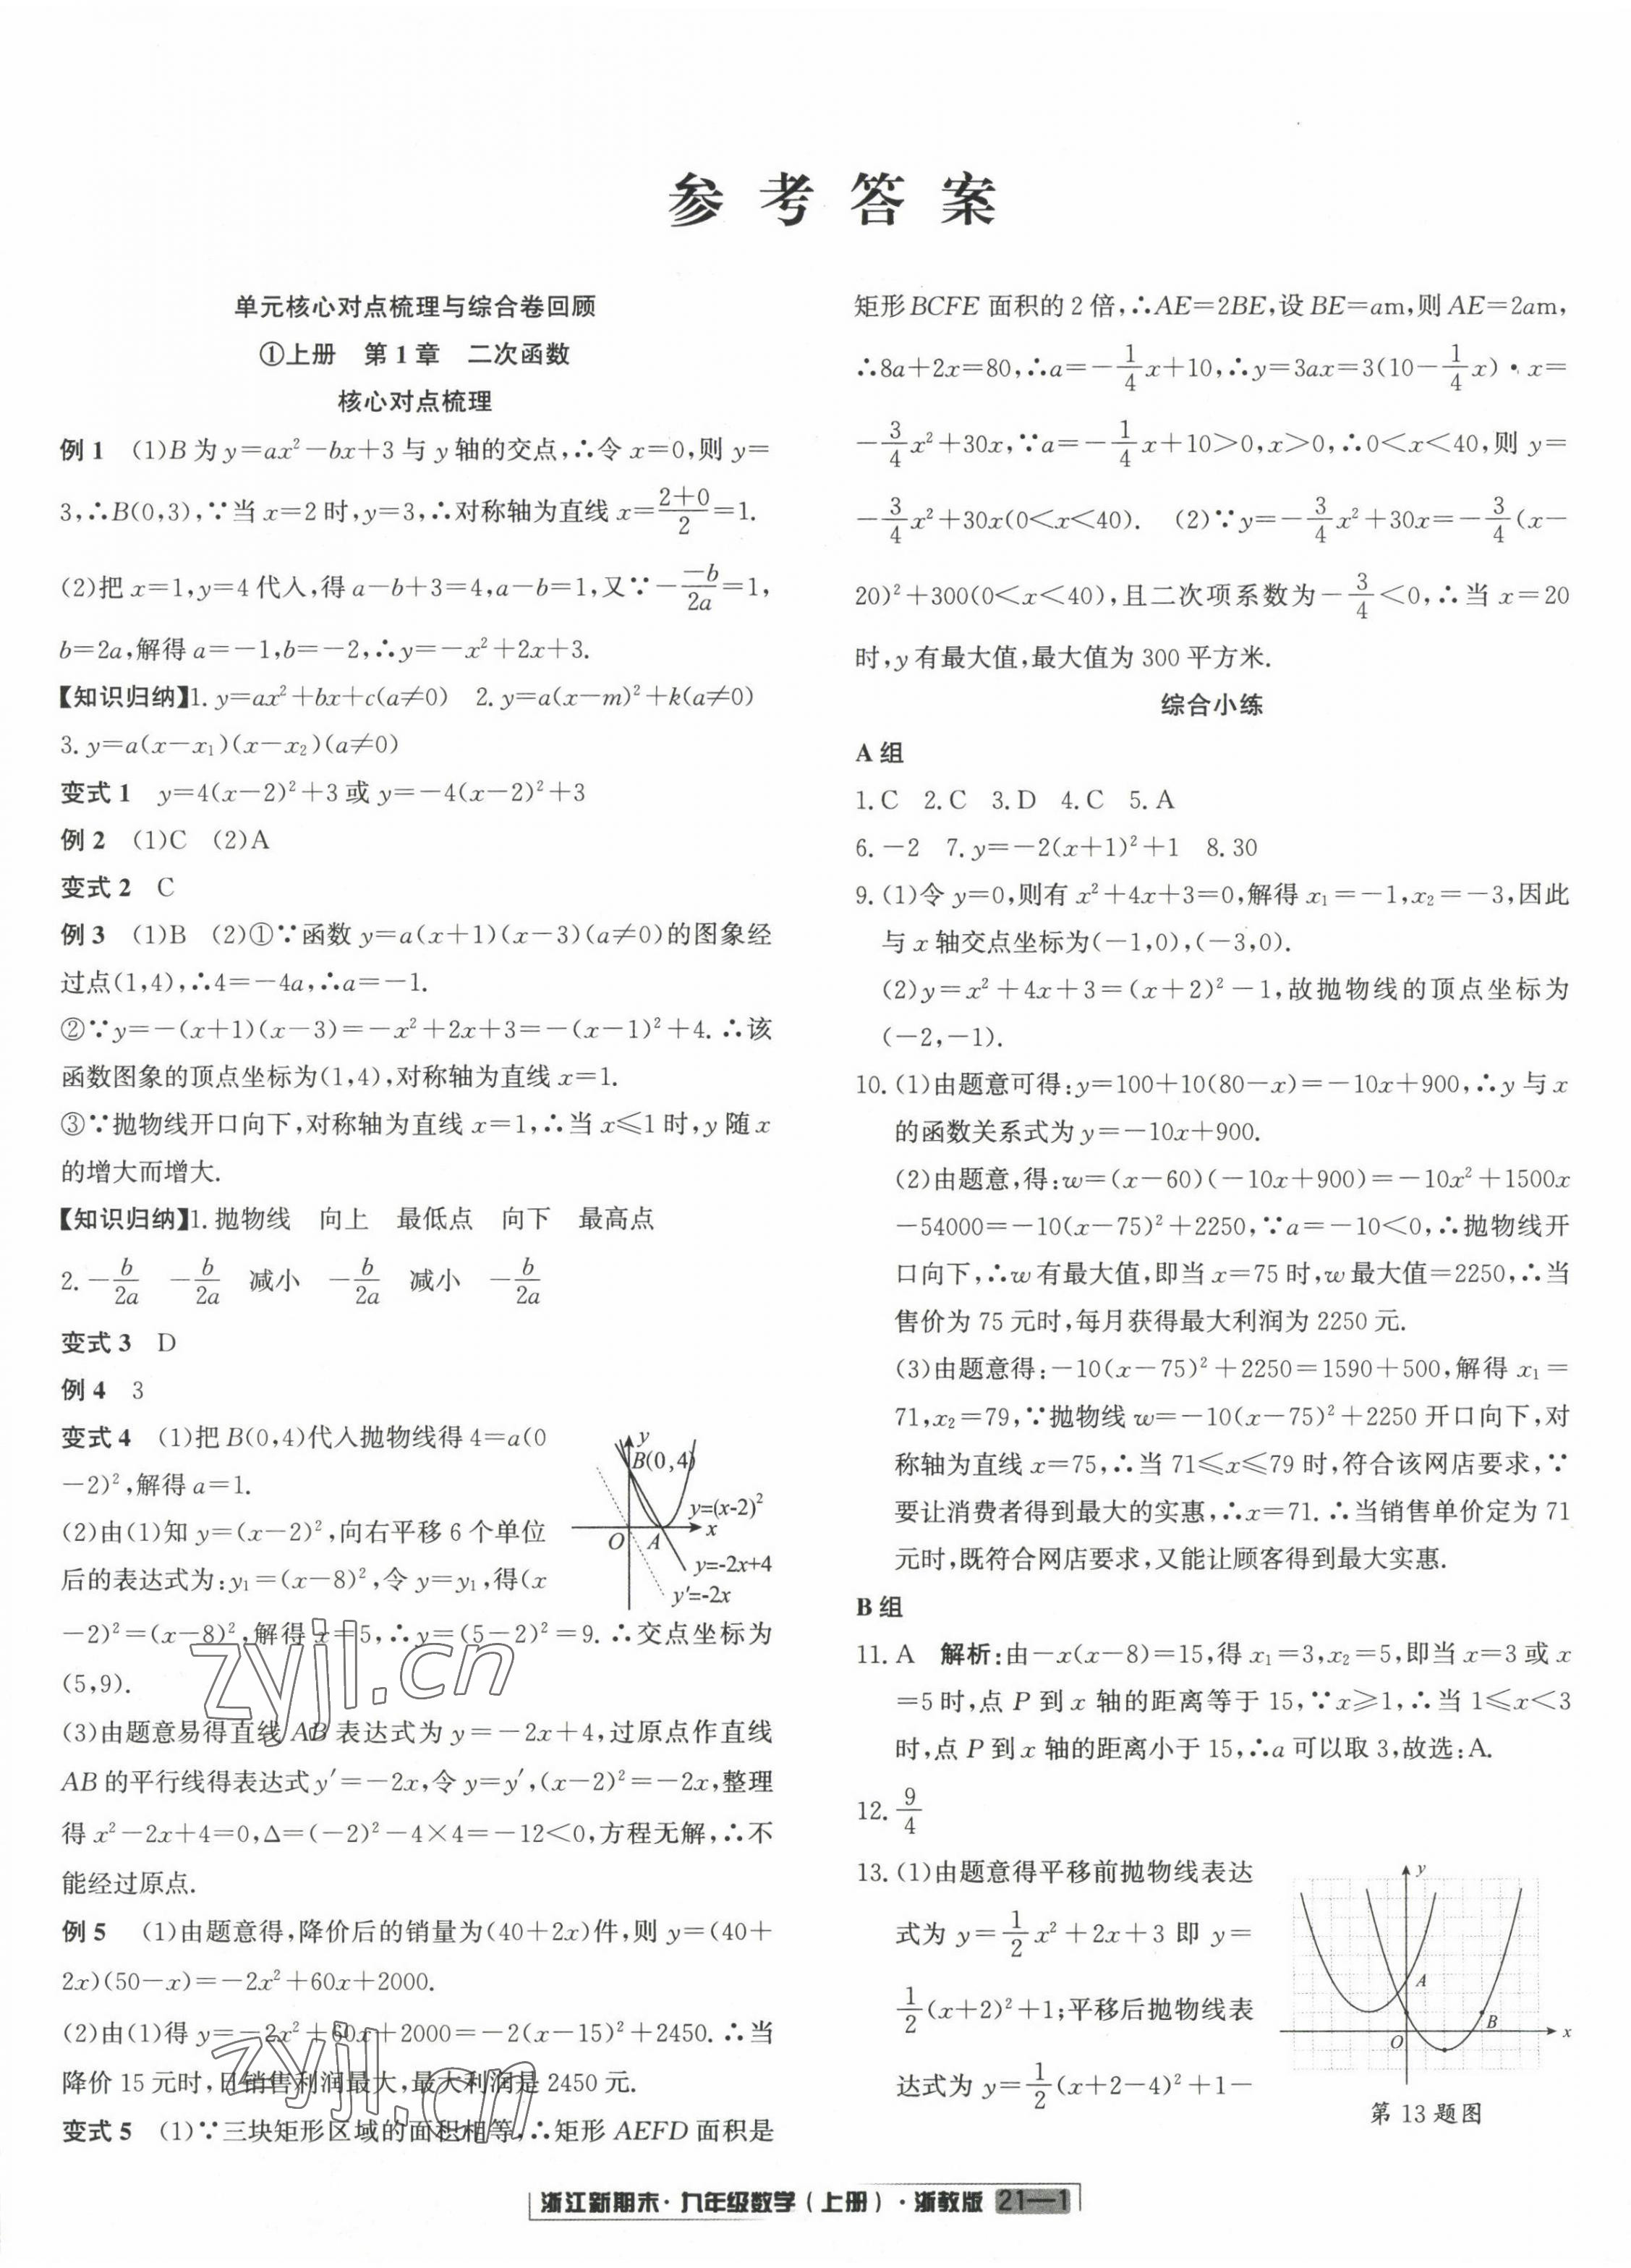 参考答案
单元核心对点梳理与综合卷回顾
①上册　第1章　二次函数
核心对点梳理
例1　(1)B为y=ax²-bx+3与y轴的交点,∴令x=0,则y=
3,∴B(0,3),∵当x=2时,y=3,∴对称轴为直线x=(2+0)/2=1.
(2)把x=1,y=4代入,得a-b+3=4,a-b=1,又∵-(-b)/(2a)=1,
b=2a,解得a=-1,b=-2,∴y=-x²+2x+3.
【知识归纳】1. y=ax²+bx+c(a≠0)　2. y=a(x-m)²+k(a≠0)
3. y=a(x-x₁)(x-x₂)(a≠0)
变式1　y=4(x-2)²+3或y=-4(x-2)²+3
例2　(1)C　(2)A
变式2　C
例3　(1)B　(2)①∵函数y=a(x+1)(x-3)(a≠0)的图象经
过点(1,4),∴4=-4a,∴a=-1.
②∵y=-(x+1)(x-3)=-x²+2x+3=-(x-1)²+4.∴该
函数图象的顶点坐标为(1,4),对称轴为直线x=1.
③∵抛物线开口向下,对称轴为直线x=1,∴当x≤1时,y随x
的增大而增大.
【知识归纳】1. 抛物线　向上　最低点　向下　最高点
2. -b/2a　-b/2a　减小　-b/2a　减小　-b/2a
变式3　D
例4　3
变式4　(1)把B(0,4)代入抛物线得4=a(0
-2)²,解得a=1.
(2)由(1)知y=(x-2)²,向右平移6个单位
后的表达式为:y₁=(x-8)²,令y=y₁,得(x
-2)²=(x-8)²,解得x=5,∴y=(5-2)²=9.∴交点坐标为
(5,9).
(3)由题意易得直线AB表达式为y=-2x+4,过原点作直线
AB的平行线得表达式y′=-2x,令y=y′,(x-2)²=-2x,整理
得x²-2x+4=0,Δ=(-2)²-4×4=-12<0,方程无解,∴不
能经过原点.
y
B(0,4)
y=(x-2)²
x
O
A
y=-2x+4
y′=-2x
例5　(1)由题意得,降价后的销量为(40+2x)件,则y=(40+
2x)(50-x)=-2x²+60x+2000.
(2)由(1)得y=-2x²+60x+2000=-2(x-15)²+2450.∴当
降价15元时,日销售利润最大,最大利润是2450元.
变式5　(1)∵三块矩形区域的面积相等,∴矩形AEFD面积是
矩形BCFE面积的2倍,∴AE=2BE,设BE=am,则AE=2am,
∴8a+2x=80,∴a=-1/4x+10,∴y=3ax=3(10-1/4x)·x=
-3/4x²+30x,∵a=-1/4x+10>0,x>0,∴0<x<40,则y=
-3/4x²+30x(0<x<40).　(2)∵y=-3/4x²+30x=-3/4(x-
20)²+300(0<x<40),且二次项系数为-3/4<0,∴当x=20
时,y有最大值,最大值为300平方米.
综合小练
A组
1. C　2. C　3. D　4. C　5. A
6. -2　7. y=-2(x+1)²+1　8. 30
9. (1)令y=0,则有x²+4x+3=0,解得x₁=-1,x₂=-3,因此
与x轴交点坐标为(-1,0),(-3,0).
(2)y=x²+4x+3=(x+2)²-1,故抛物线的顶点坐标为
(-2,-1).
10. (1)由题意可得:y=100+10(80-x)=-10x+900,∴y与x
的函数关系式为y=-10x+900.
(2)由题意,得:w=(x-60)(-10x+900)=-10x²+1500x
-54000=-10(x-75)²+2250,∵a=-10<0,∴抛物线开
口向下,∴w有最大值,即当x=75时,w最大值=2250,∴当
售价为75元时,每月获得最大利润为2250元.
(3)由题意得:-10(x-75)²+2250=1590+500,解得x₁=
71,x₂=79,∵抛物线w=-10(x-75)²+2250开口向下,对
称轴为直线x=75,∴当71≤x≤79时,符合该网店要求,∵
要让消费者得到最大的实惠,∴x=71.∴当销售单价定为71
元时,既符合网店要求,又能让顾客得到最大实惠.
B组
11. A　解析:由-x(x-8)=15,得x₁=3,x₂=5,即当x=3或x
=5时,点P到x轴的距离等于15,∵x≥1,∴当1≤x<3
时,点P到x轴的距离小于15,∴a可以取3,故选:A.
12. 9/4
13. (1)由题意得平移前抛物线表达
式为y=1/2x²+2x+3即y=
1/2(x+2)²+1;平移后抛物线表
达式为y=1/2(x+2-4)²+1-
y
A
B
O
x
第13题图
zyjl.cn
zyjl.cn
浙江新期末·九年级数学(上册)·浙教版 21—1